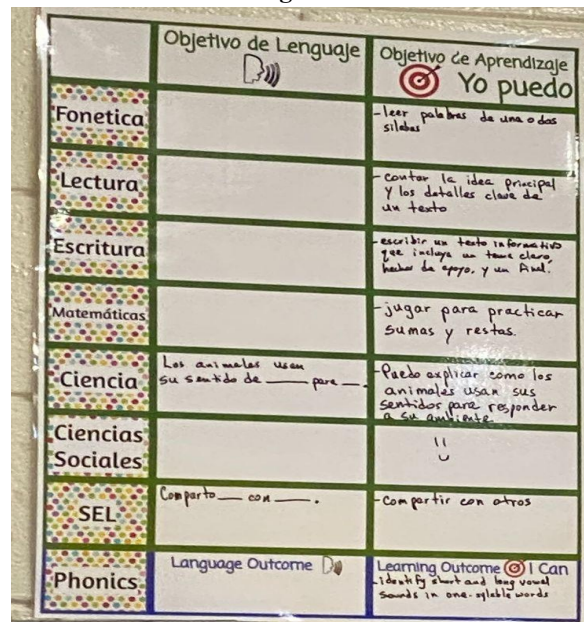 Objetivo de Lenguaje
Objetivo de Aprendizaje
Yo puedo
Fonetica
-leer palabras de una o dos
silabas
Lectura
-contar la idea principal
y los detalles clave de
un texto
Escritura
-escribir un texto informativo
que incluya un tema claro,
hechos de apoyo, y un final.
Matemáticas
-jugar para practicar
sumas y restas.
Ciencia
Los animales usan
su sentido de ____ para ___.
-Puedo explicar como los
animales usan sus
sentidos para responder
a su ambiente.
Ciencias
Sociales
SEL
Comparto ___ con ____.
-compartir con otros
Phonics
Language Outcome
Learning Outcome I Can
-identify short and long vowel
sounds in one-syllable words